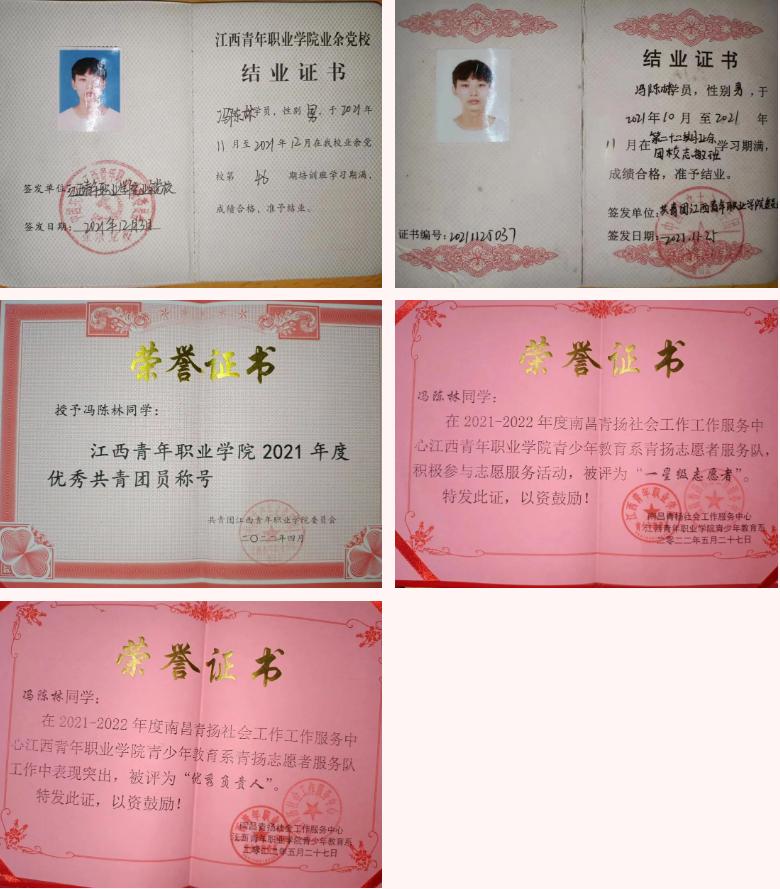 江西青年职业学院业余党校
结业证书
冯陈林学员，性别男，于2021年
11月至2021年12月在我校业余党
校第46期培训班学习期满，
成绩合格，准予结业。
签发单位：江西青年职业学院业余党校
签发日期：2021年12月3日
结业证书
冯陈林学员，性别男，于
2021年10月至2021年
11月在第二十二期业余
团校志敏班学习期满，
成绩合格，准予结业。
签发单位：共青团江西青年职业学院
签发日期：2021.11.25
证书编号：2021112S037
荣誉证书
授予冯陈林同学：
江西青年职业学院2021年度
优秀共青团员称号
共青团江西青年职业学院委员会
二〇二二年四月
荣誉证书
冯陈林同学：
在2021-2022年度南昌青扬社会工作工作服务中
心江西青年职业学院青少年教育系青扬志愿者服务队，
积极参与志愿服务活动，被评为“一星级志愿者”。
特发此证，以资鼓励！
南昌青扬社会工作服务中心
江西青年职业学院青少年教育系
二零二二年五月二十七日
荣誉证书
冯陈林同学：
在2021-2022年度南昌青扬社会工作工作服务中
心江西青年职业学院青少年教育系青扬志愿者服务队
工作中表现突出，被评为“优秀负责人”。
特发此证，以资鼓励！
南昌青扬社会工作服务中心
江西青年职业学院青少年教育系
二零二二年五月二十七日